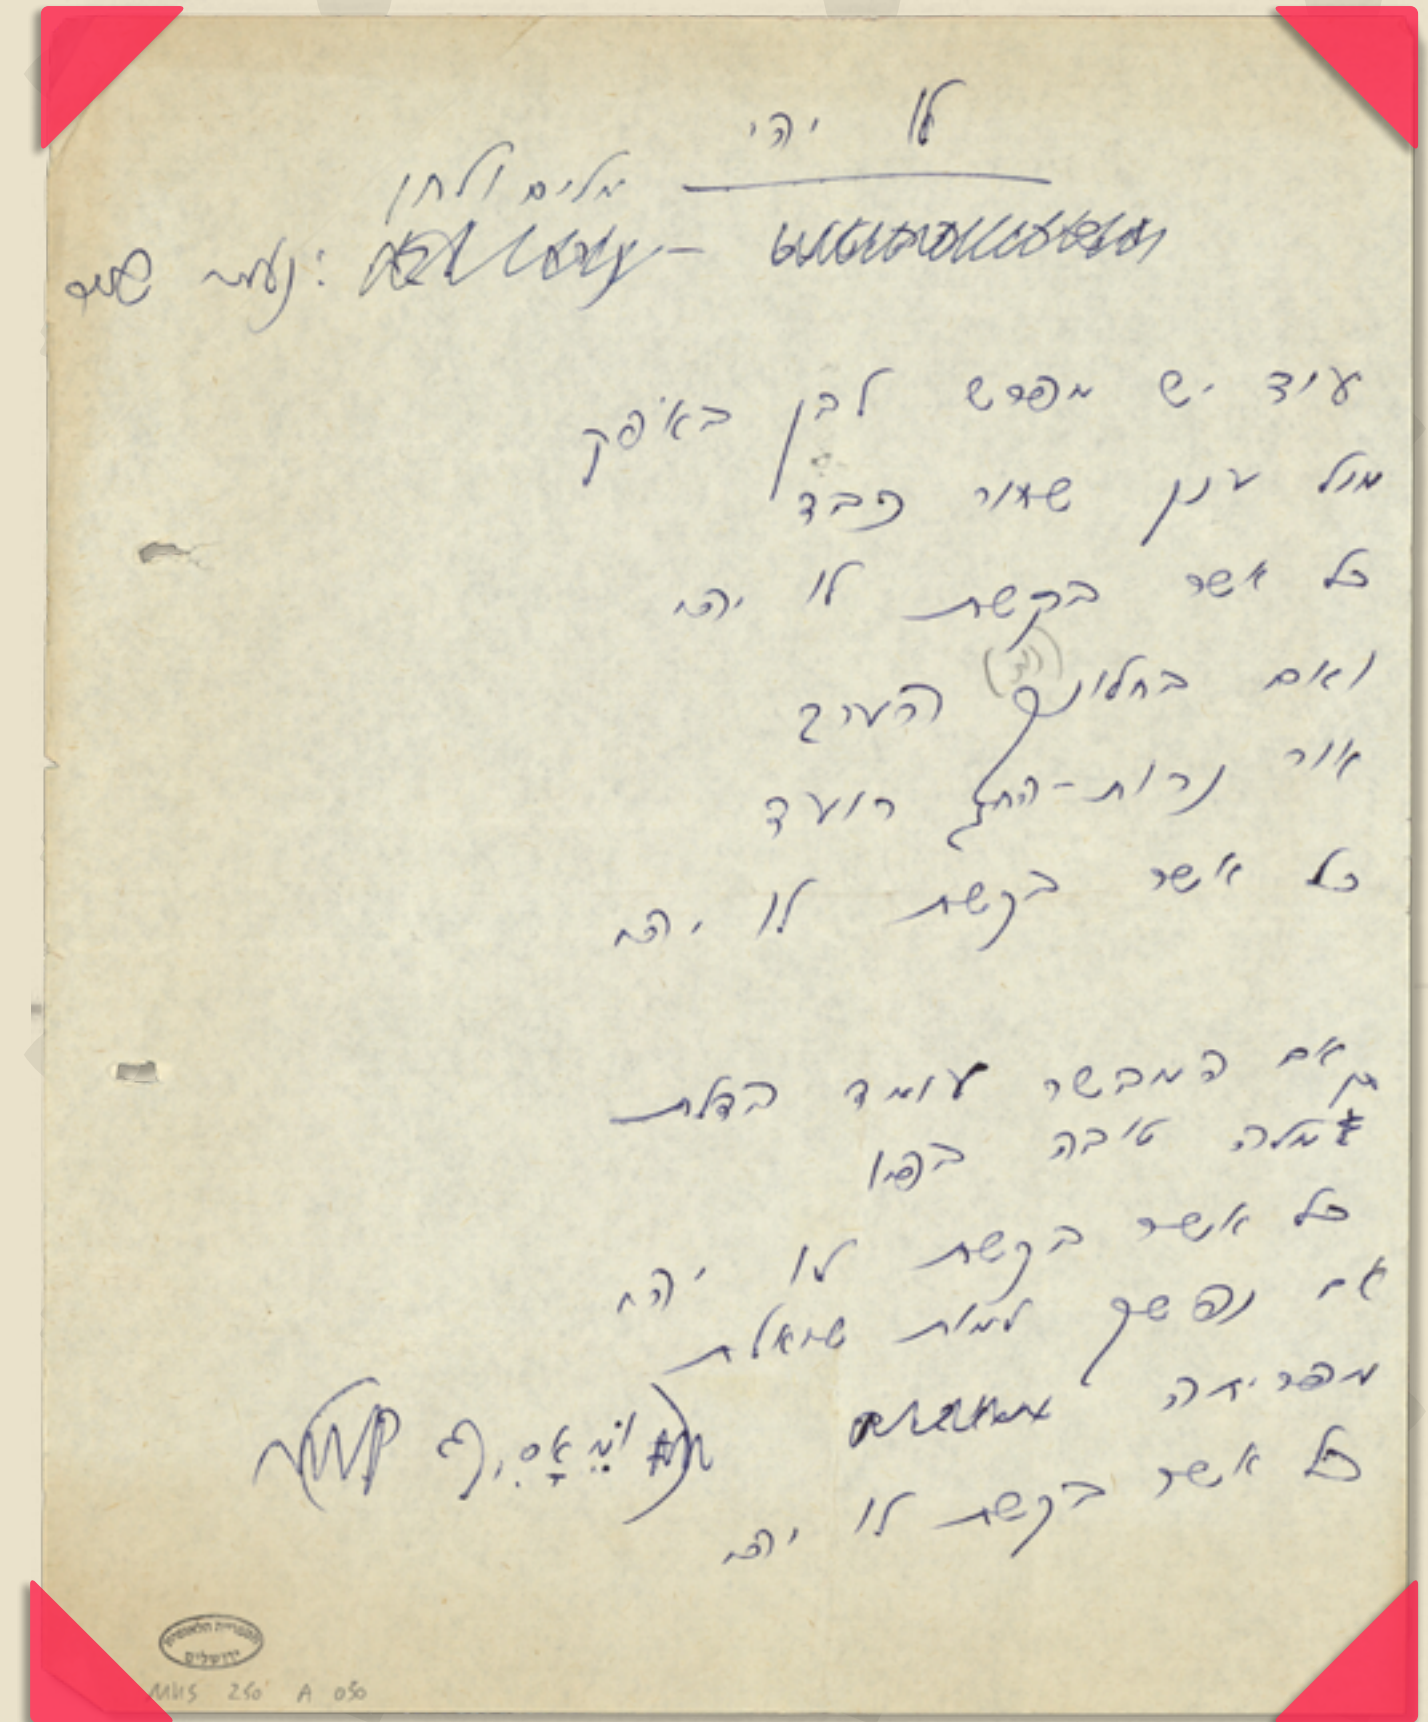 לו יהי
מלים ולחן
: נעמי שמר
עוד יש מפרש לבן באופק
מול ענן שחור כבד
כל אשר נבקש לו יהי
ואם בחלונך הערב
אור נרות-החג רועד
כל אשר נבקש לו יהי
אם המבשר עומד בדלת
תן מלה טובה בפיו
כל אשר נבקש לו יהי
אם נפשך למות שואלת
מפריחה
ומאסיף
כל אשר נבקש לו יהי
ירושלים
MUS 250 A 050